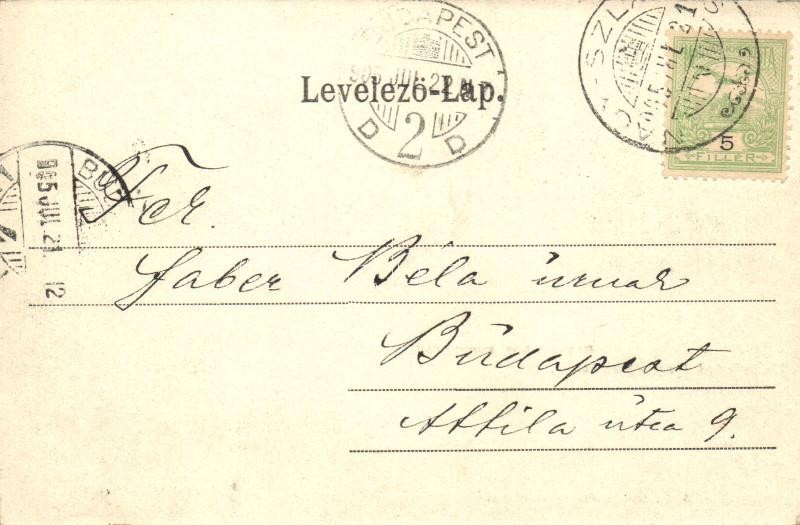 BUDAPEST
905 JUL. 21
D 2 D
Levelező-Lap.
5
FILLÉR
BUD
905 JUL. 21. 12
Faber Béla úrnak
Budapest
Attila útca 9.